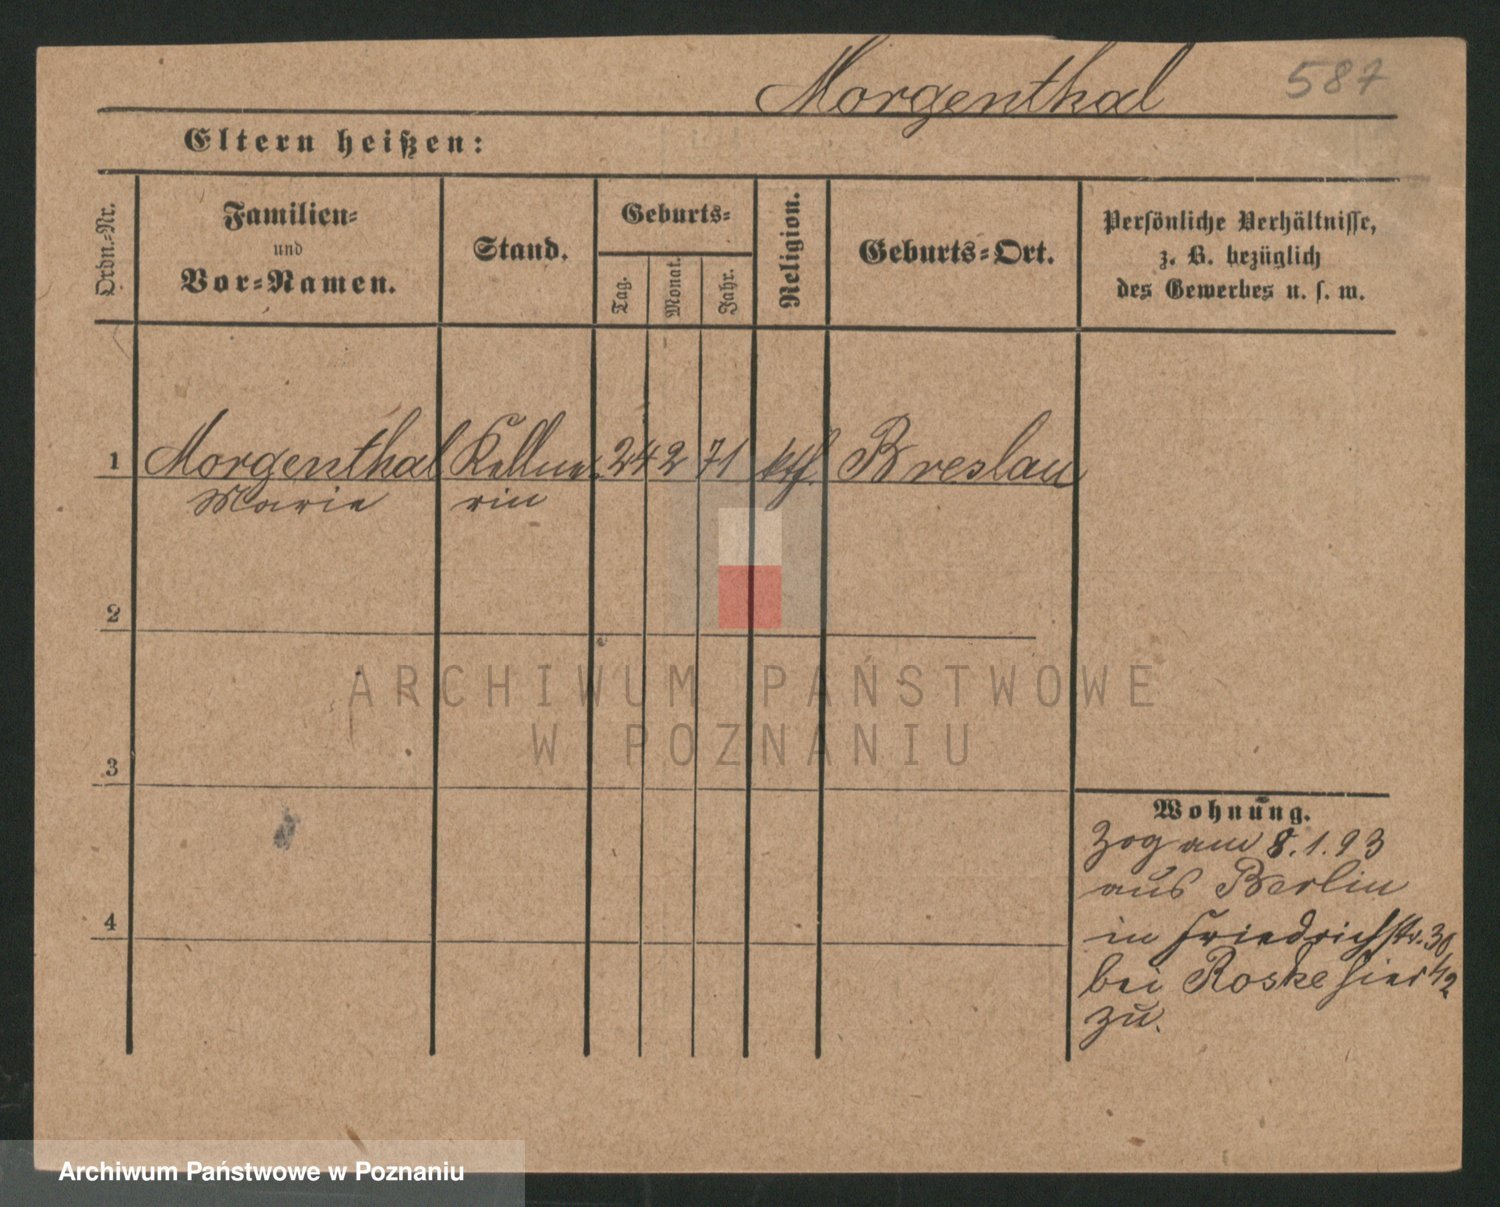 Morgenthal 587
Eltern heißen:
Ordn.=Nr.
Familien=
und
Vor=Namen.
Stand.
Geburts=
Tag.
Monat.
Jahr.
Religion.
Geburts=Ort.
Persönliche Verhältnisse,
z. B. bezüglich
des Gewerbes u. s. w.
1 Morgenthal Kellne 24 2 71 kth. Breslau
Marie rin
2
ARCHIWUM PAŃSTWOWE
W POZNANIU
3
Wohnung.
Zog am 8.1.93
aus Berlin
4
in Friedrichstr. 30
bei Roske hier
zu.
Archiwum Państwowe w Poznaniu